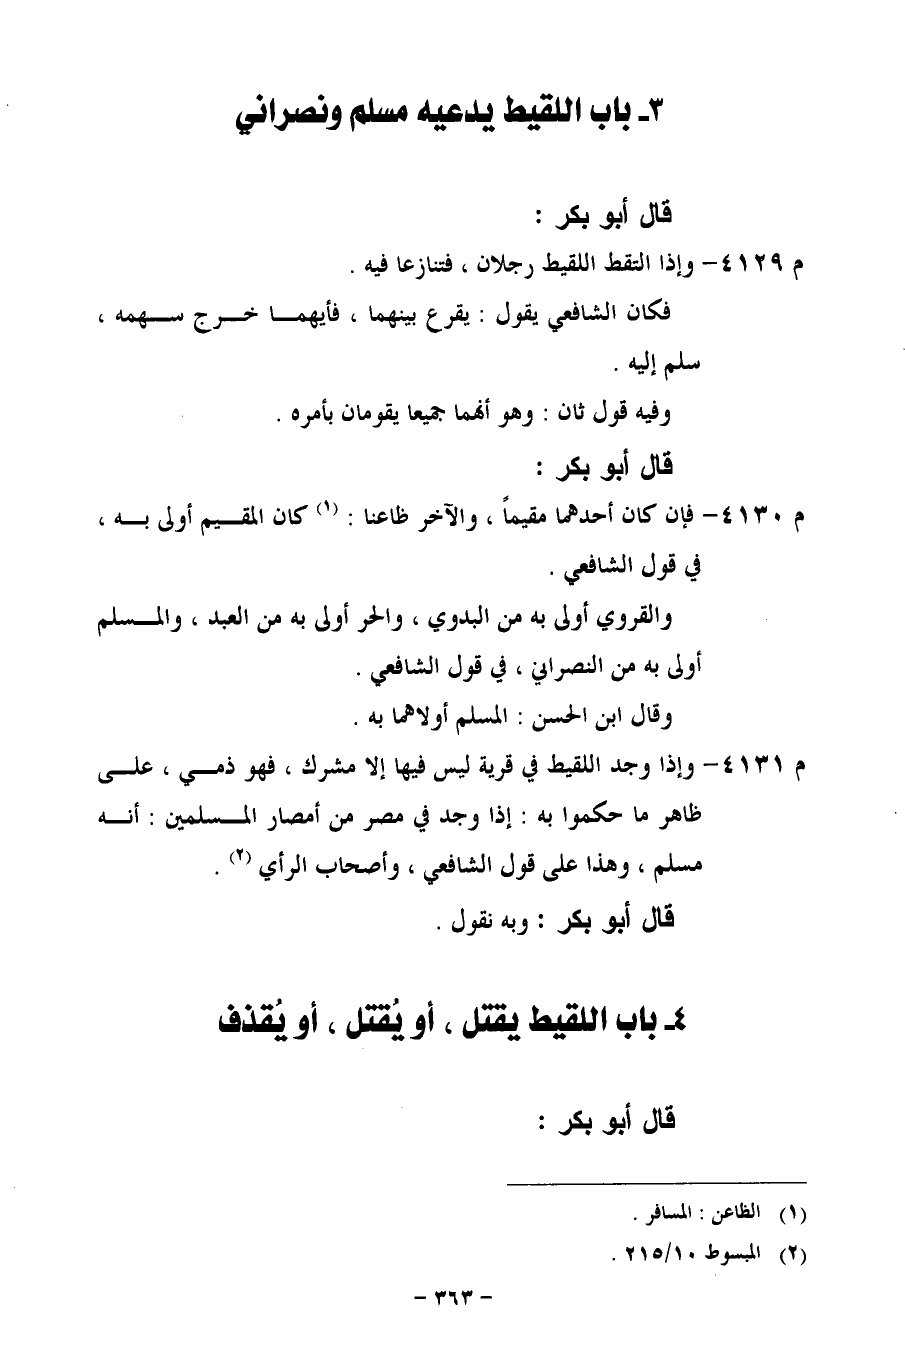 ٣ـ باب اللقيط يدعيه مسلم ونصراني
قال أبو بكر :
م ٤١٢٩– وإذا التقط اللقيط رجلان ، فتنازعا فيه .
فكان الشافعي يقول : يقرع بينهما ، فأيهمـا خـرج سـهمه ،
سلم إليه .
وفيه قول ثان : وهو أنهما جميعا يقومان بأمره .
قال أبو بكر :
م ٤١٣٠– فإن كان أحدهما مقيماً ، والآخر ظاعنا : (١) كان المقـيم أولى بـه ،
في قول الشافعي .
والقروي أولى به من البدوي ، والحر أولى به من العبد ، والمـسلم
أولى به من النصراني ، في قول الشافعي .
وقال ابن الحسن : المسلم أولاهما به .
م ٤١٣١– وإذا وجد اللقيط في قرية ليس فيها إلا مشرك ، فهو ذمـي ، علـى
ظاهر ما حكموا به : إذا وجد في مصر من أمصار المـسلمين : أنـه
مسلم ، وهذا على قول الشافعي ، وأصحاب الرأي (٢) .
قال أبو بكر : وبه نقول .
٤ـ باب اللقيط يقتل ، أو يُقتل ، أو يُقذف
قال أبو بكر :
(١) الظاعن : المسافر .
(٢) المبسوط ٢١٥/١٠ .
– ٣٦٣ –